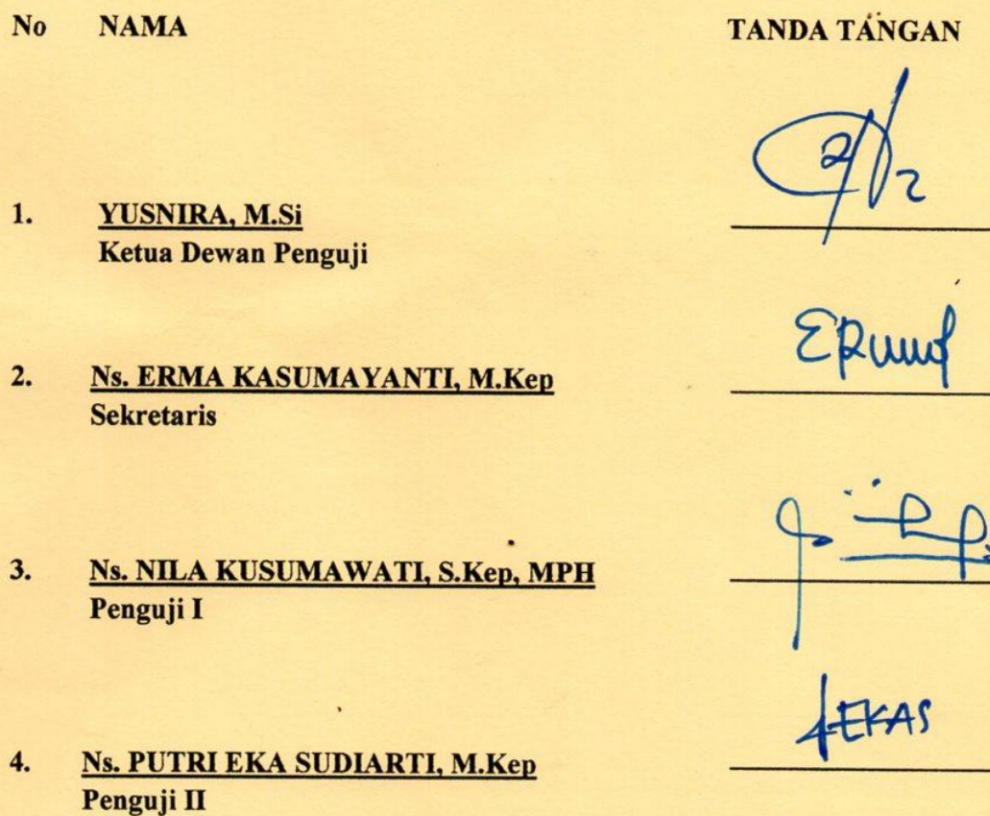 No NAMA TANDA TANGAN
1. YUSNIRA, M.Si
Ketua Dewan Penguji
2. Ns. ERMA KASUMAYANTI, M.Kep
Sekretaris
3. Ns. NILA KUSUMAWATI, S.Kep, MPH
Penguji I
4. Ns. PUTRI EKA SUDIARTI, M.Kep
Penguji II